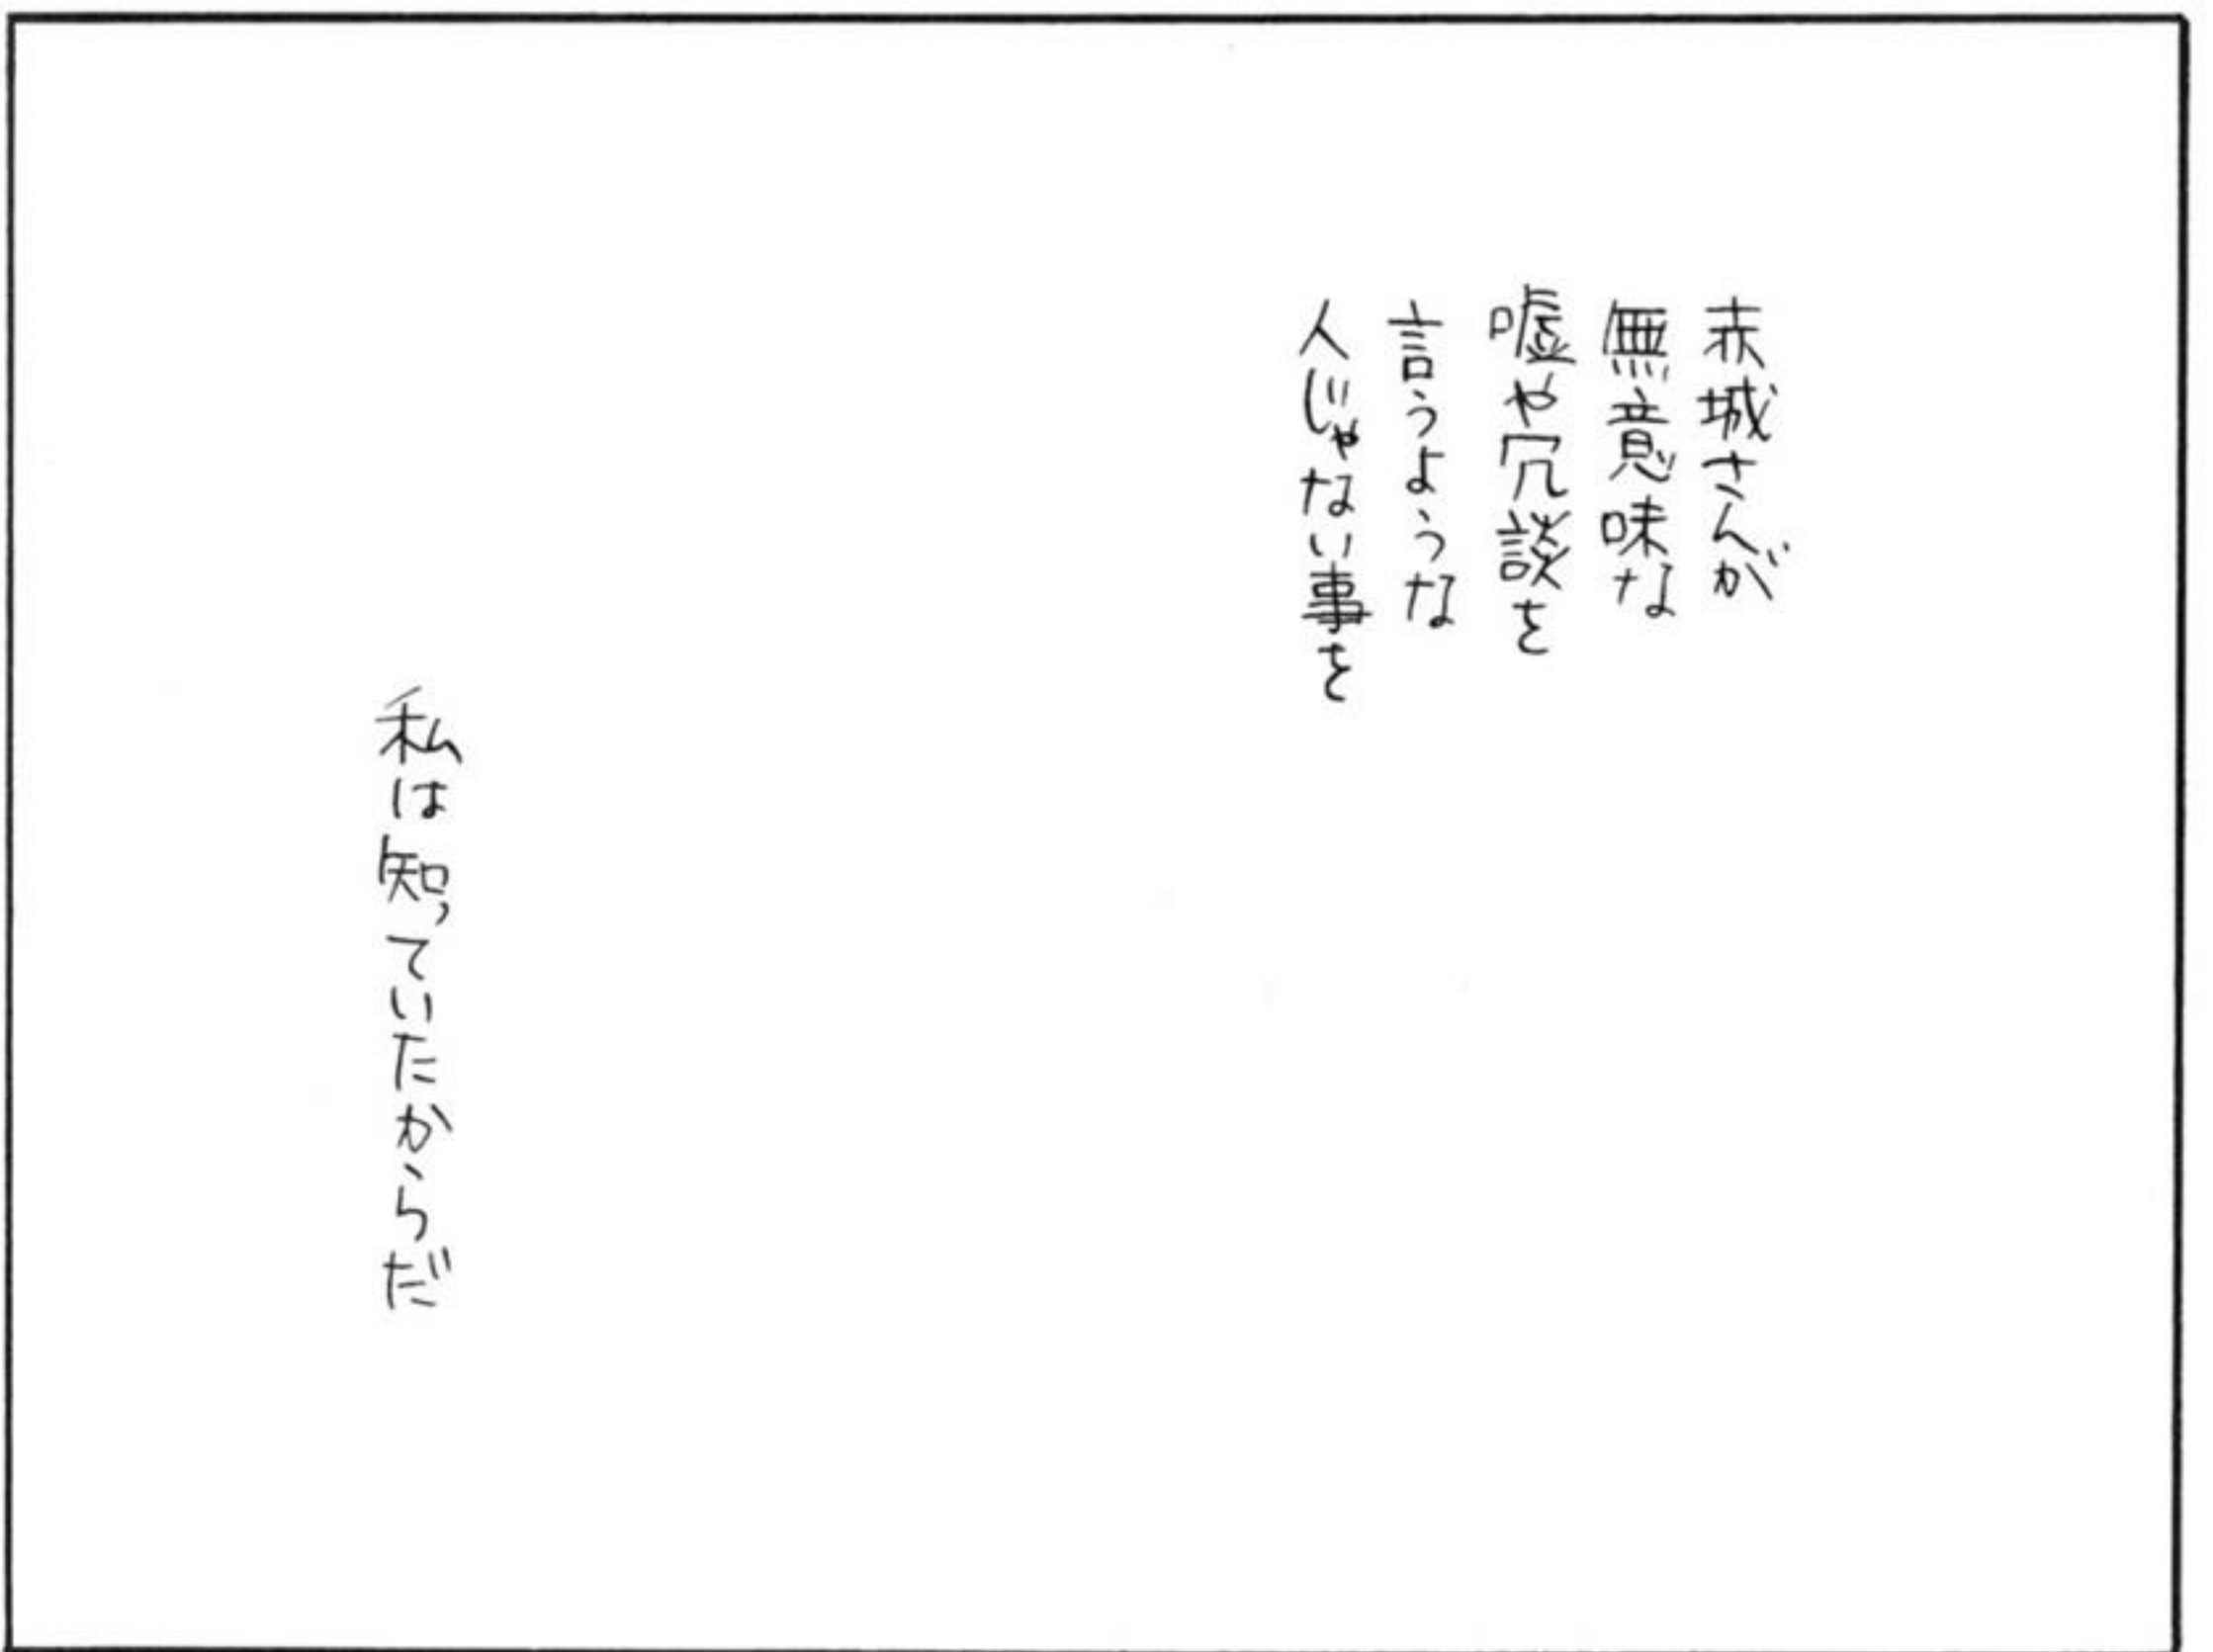 赤城さんが
無意味な
嘘や冗談を
言うような
人じゃない事を
私は知っていたからだ